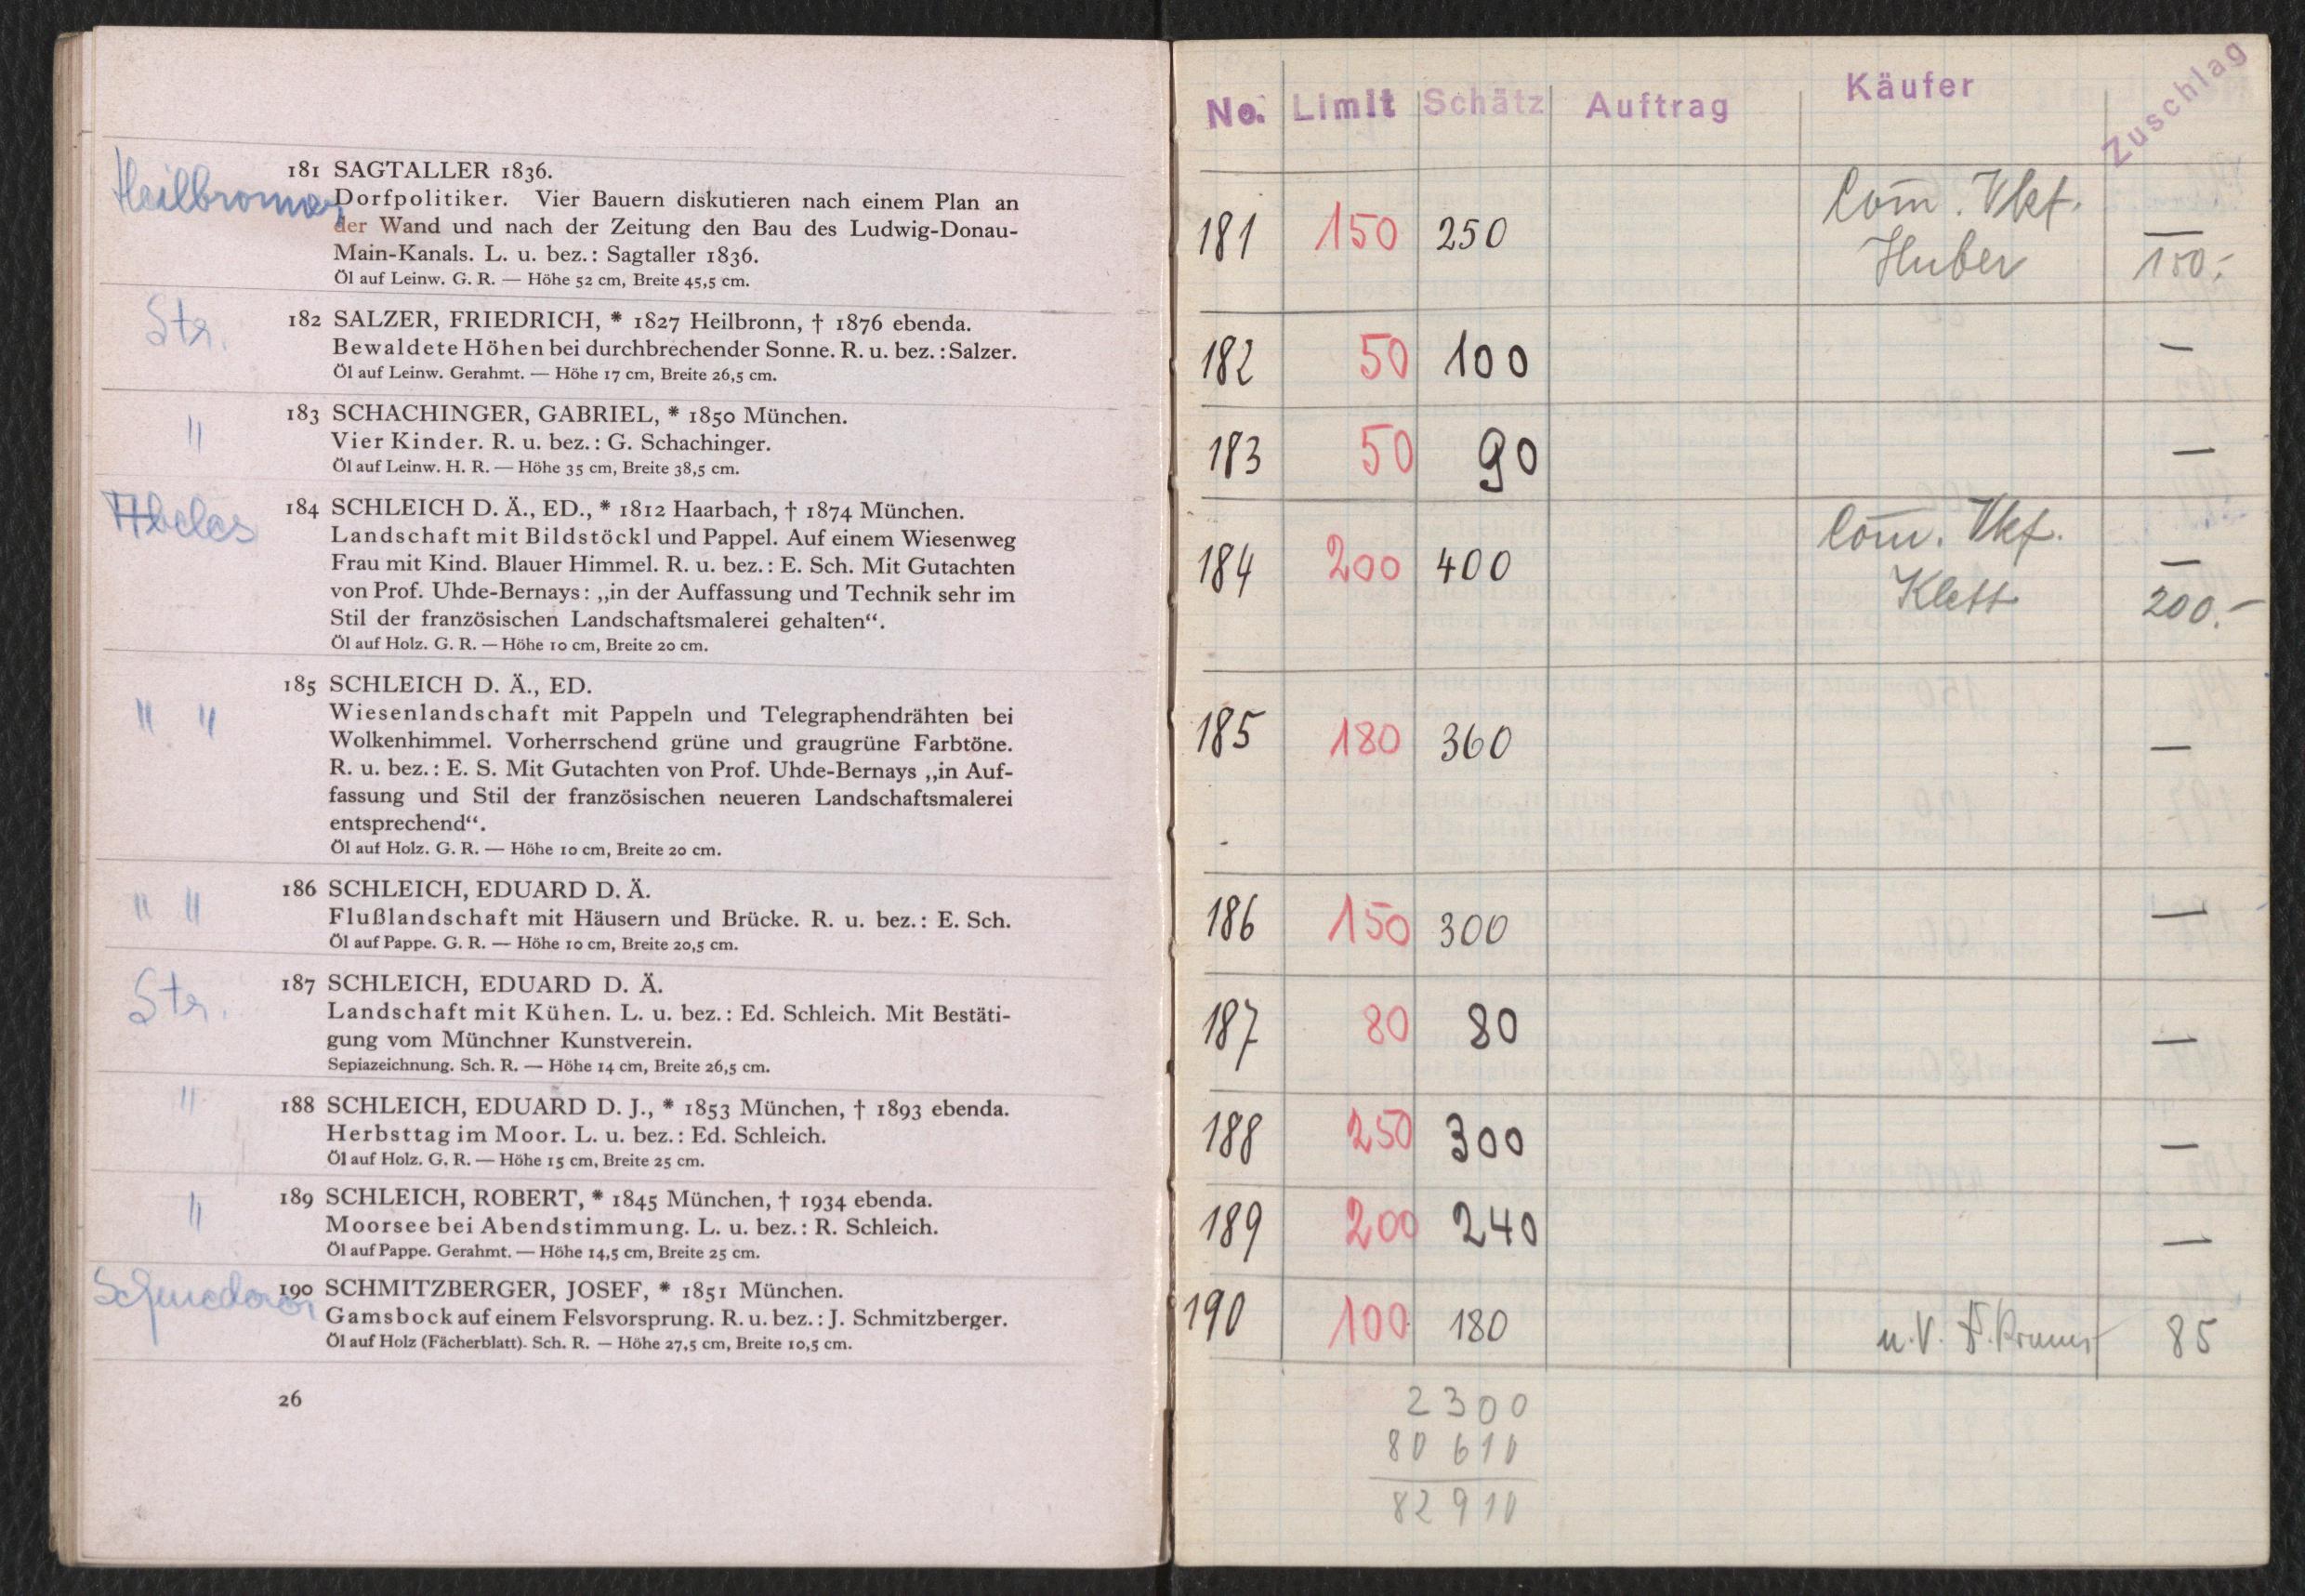 Heilbronner
181 SAGTALLER 1836.
Dorfpolitiker. Vier Bauern diskutieren nach einem Plan an
der Wand und nach der Zeitung den Bau des Ludwig-Donau-
Main-Kanals. L. u. bez.: Sagtaller 1836.
Öl auf Leinw. G. R. — Höhe 52 cm, Breite 45,5 cm.
Str.
182 SALZER, FRIEDRICH, * 1827 Heilbronn, † 1876 ebenda.
Bewaldete Höhen bei durchbrechender Sonne. R. u. bez.: Salzer.
Öl auf Leinw. Gerahmt. — Höhe 17 cm, Breite 26,5 cm.
"
183 SCHACHINGER, GABRIEL, * 1850 München.
Vier Kinder. R. u. bez.: G. Schachinger.
Öl auf Leinw. H. R. — Höhe 35 cm, Breite 38,5 cm.
Abeles
184 SCHLEICH D. Ä., ED., * 1812 Haarbach, † 1874 München.
Landschaft mit Bildstöckl und Pappel. Auf einem Wiesenweg
Frau mit Kind. Blauer Himmel. R. u. bez.: E. Sch. Mit Gutachten
von Prof. Uhde-Bernays: „in der Auffassung und Technik sehr im
Stil der französischen Landschaftsmalerei gehalten“.
Öl auf Holz. G. R. — Höhe 10 cm, Breite 20 cm.
" "
185 SCHLEICH D. Ä., ED.
Wiesenlandschaft mit Pappeln und Telegraphendrähten bei
Wolkenhimmel. Vorherrschend grüne und graugrüne Farbtöne.
R. u. bez.: E. S. Mit Gutachten von Prof. Uhde-Bernays „in Auf-
fassung und Stil der französischen neueren Landschaftsmalerei
entsprechend“.
Öl auf Holz. G. R. — Höhe 10 cm, Breite 20 cm.
" "
186 SCHLEICH, EDUARD D. Ä.
Flußlandschaft mit Häusern und Brücke. R. u. bez.: E. Sch.
Öl auf Pappe. G. R. — Höhe 10 cm, Breite 20,5 cm.
Str.
187 SCHLEICH, EDUARD D. Ä.
Landschaft mit Kühen. L. u. bez.: Ed. Schleich. Mit Bestäti-
gung vom Münchner Kunstverein.
Sepiazeichnung. Sch. R. — Höhe 14 cm, Breite 26,5 cm.
"
188 SCHLEICH, EDUARD D. J., * 1853 München, † 1893 ebenda.
Herbsttag im Moor. L. u. bez.: Ed. Schleich.
Öl auf Holz. G. R. — Höhe 15 cm, Breite 25 cm.
"
189 SCHLEICH, ROBERT, * 1845 München, † 1934 ebenda.
Moorsee bei Abendstimmung. L. u. bez.: R. Schleich.
Öl auf Pappe. Gerahmt. — Höhe 14,5 cm, Breite 25 cm.
190 SCHMITZBERGER, JOSEF, * 1851 München.
Gamsbock auf einem Felsvorsprung. R. u. bez.: J. Schmitzberger.
Öl auf Holz (Fächerblatt). Sch. R. — Höhe 27,5 cm, Breite 10,5 cm.
26
No. Limit Schätz Auftrag Käufer Zuschlag
Com. Vkf. —
181 150 250 Huber 150.-
182 50 100 —
183 50 90 —
Com. Vkf. —
184 200 400 Klett 200.-
185 180 360 —
186 150 300 —
187 80 80 —
188 250 300 —
189 200 240 —
190 100 180 n.V. 85
2300
80 610
82 910